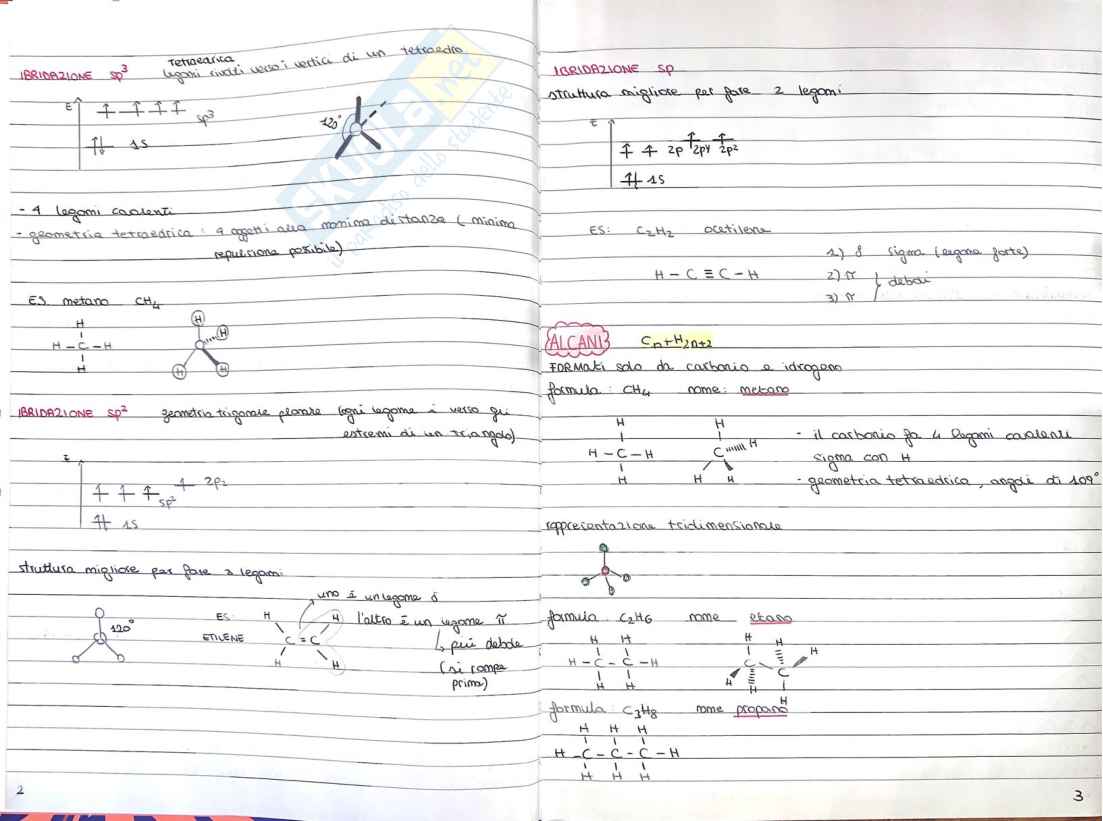 IBRIDAZIONE sp3 Tetraedrica
legami rivolti verso i vertici di un tetraedro
E
sp3
1S
120°
SKUOLA.net
il paradiso dello studente
- 4 legami covalenti
- geometria tetraedrica : 4 oggetti alla massima distanza ( minima
repulsione possibile)
ES. metano CH4
H
H - C - H
H
H
H
C
H
H
IBRIDAZIONE sp2 geometria trigonale planare (ogni legame è verso gli
estremi di un triangolo)
E
sp2
2pz
1S
struttura migliore per fare 3 legami
120°
ES:
ETILENE
H
H
C = C
H
H
uno è un legame δ
l'altro è un legame π
più debole
(si rompe
prima)
2
IBRIDAZIONE sp
struttura migliore per fare 2 legami
E
2p 2py 2pz
1S
ES: C2H2 acetilene
H - C ≡ C - H
1) δ sigma (legame forte)
2) π
3) π
deboli
ALCANI Cn+H2n+2
FORMATI solo da carbonio e idrogeno
formula : CH4 nome: metano
H
H - C - H
H
H
C H
H H
- il carbonio fa 4 legami covalenti
sigma con H
- geometria tetraedrica, angoli di 109°
rappresentazione tridimensionale
formula : C2H6 nome etano
H H
H - C - C - H
H H
H H
C C
H H
H
formula : C3H8 nome propano
H H H
H - C - C - C - H
H H H
3